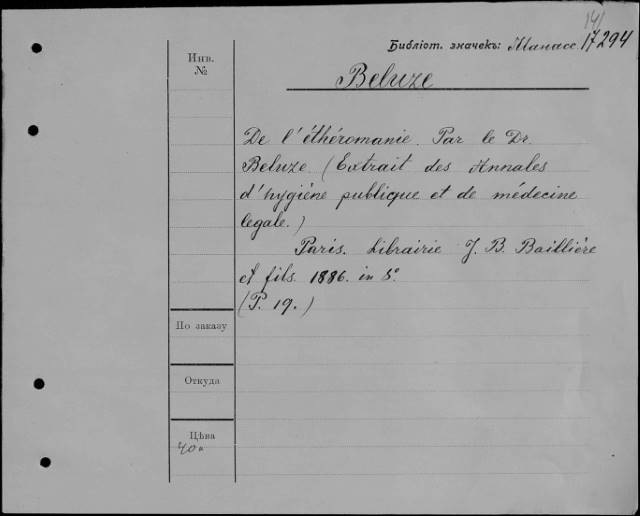 141
Библіот. значекъ: Манасс. 17294
Инв.
№
Beluze
De l'éthéromanie. Par le Dr.
Beluze. (Extrait des Annales
d'hygiène publique et de médecine
legale.)
Paris. Librairie J. B. Baillière
et fils. 1886. in 8°.
(P. 19.)
По заказу
Откуда
Цѣна
40 "